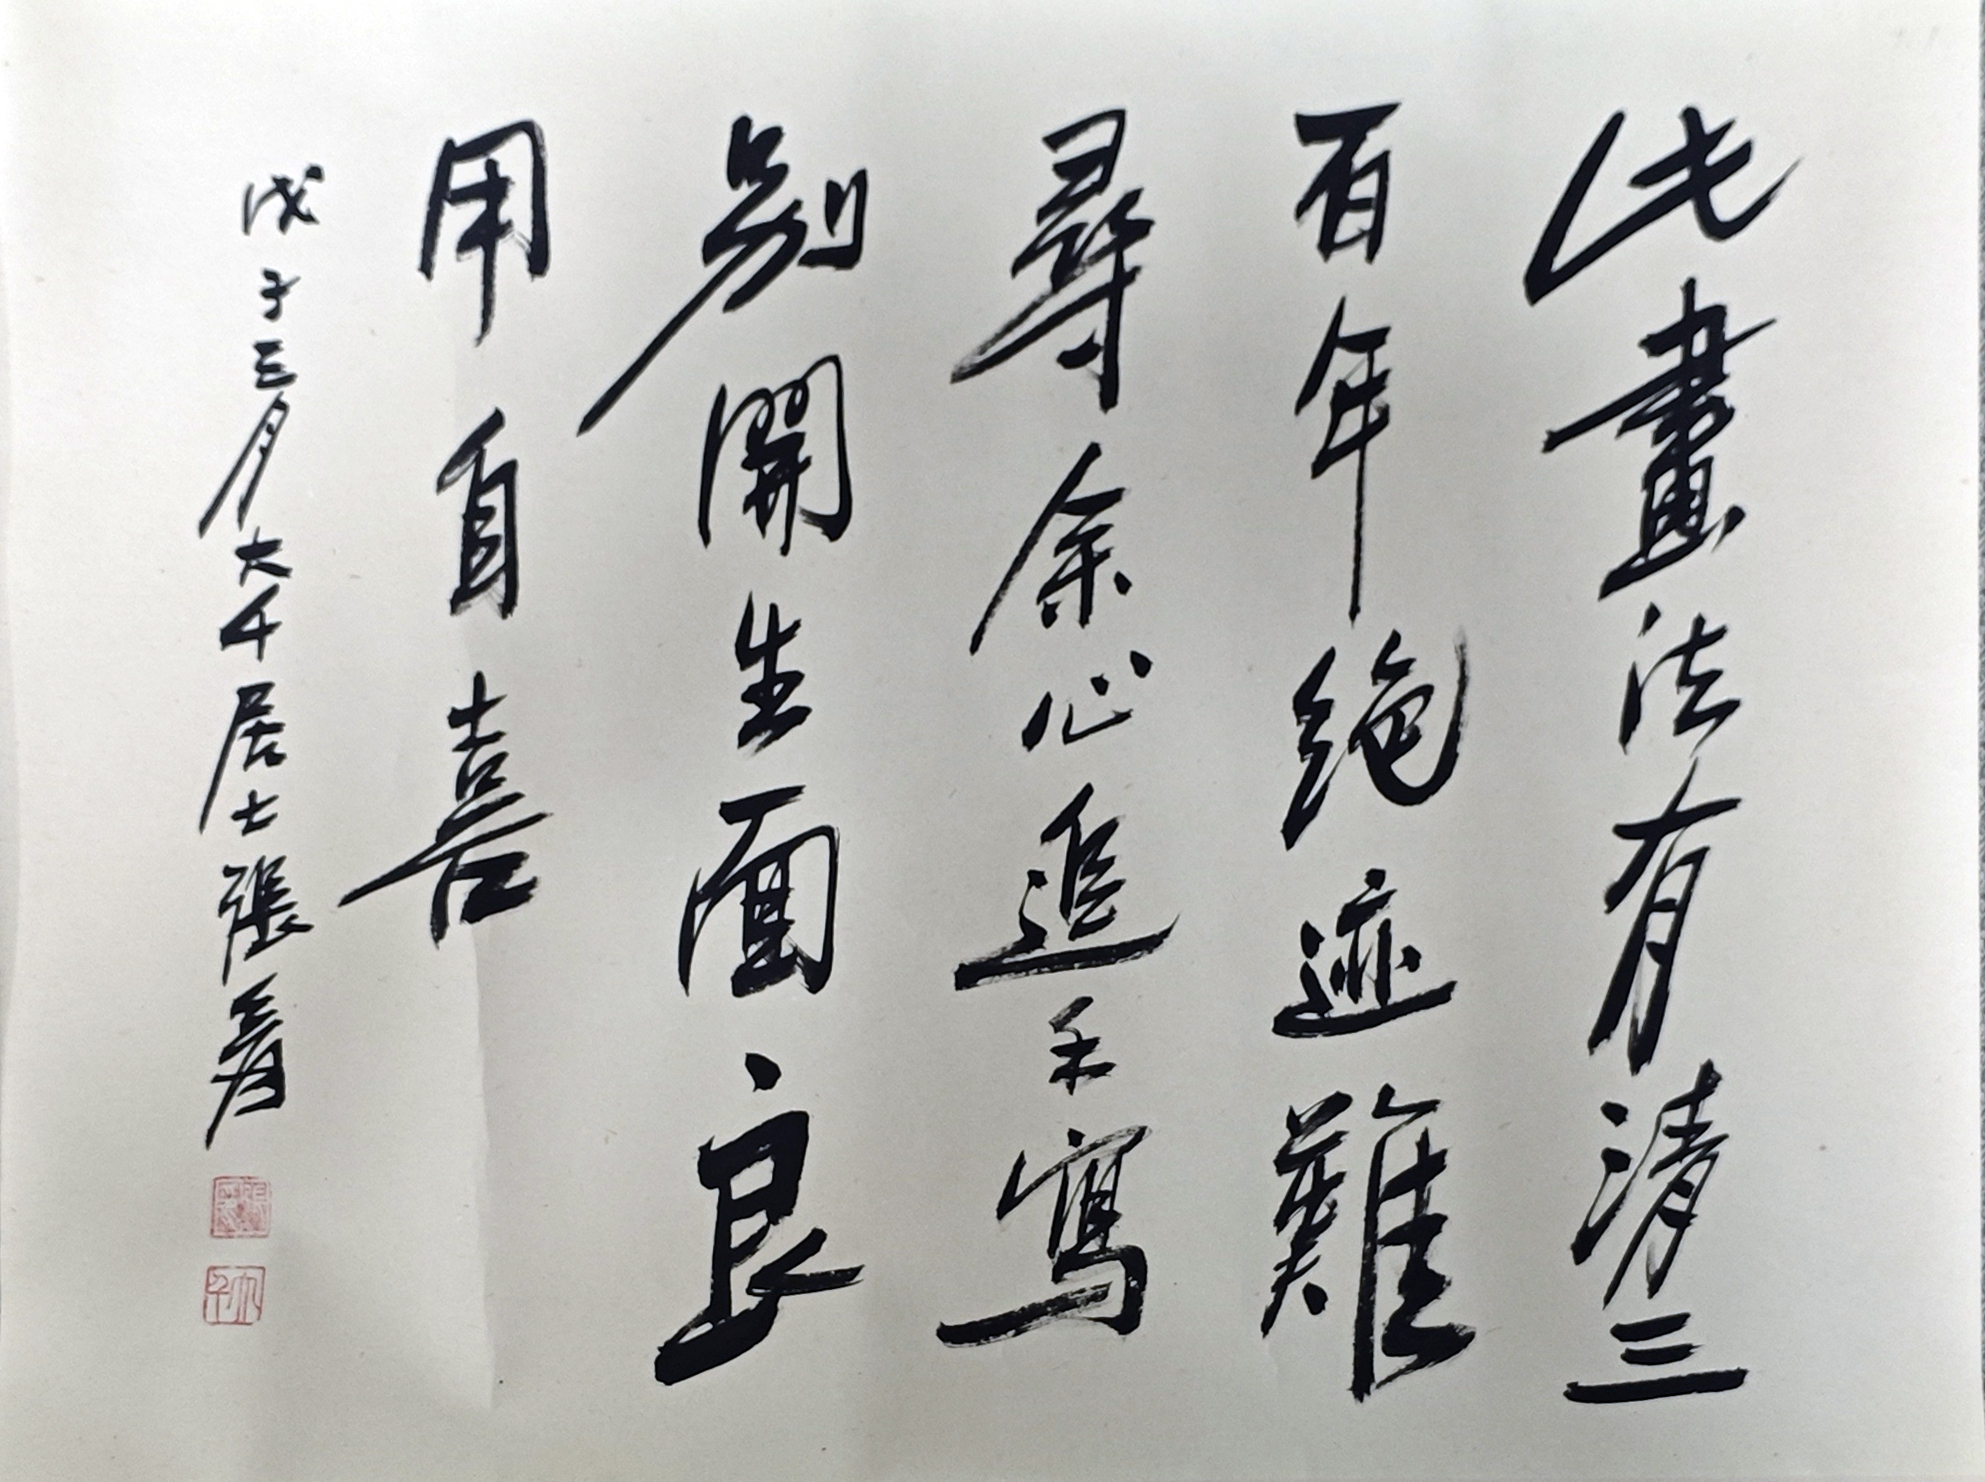 此畫法有清三
百年絕迹難
尋余心追手寫
別開生面良
用自喜
戊子三月大千居士張爰
大千